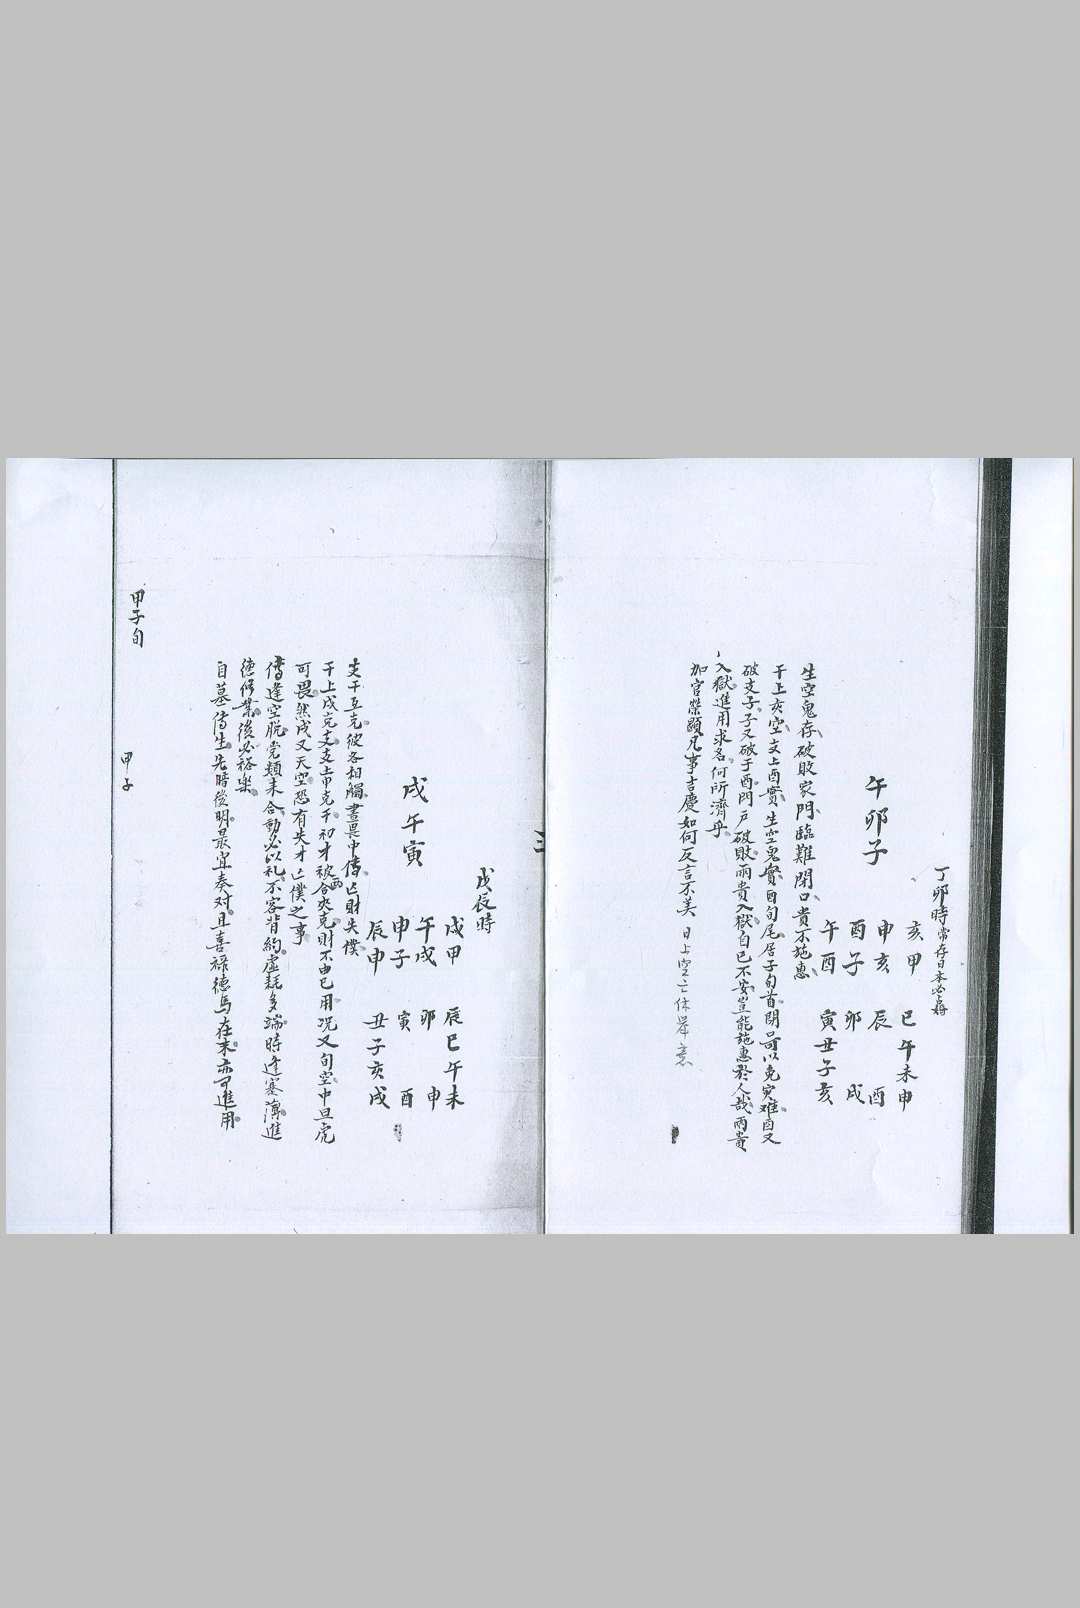 丁卯時 常存日本必梅
午卯子
亥甲 巳午未申
申亥 辰 酉
酉子 卯 戌
午酉 寅丑子亥
生空鬼存、破敗家門、臨難閉口、貴不施惠、
干上亥空、支上酉實、生空鬼實、酉旬尾居子旬首閉口、可以免災难。酉又
破支子、子又破于酉、門戶破敗。兩貴入獄、自已不安、豈能施惠於人哉。兩貴
入獄、進用求名、何所濟乎。
加官榮顯凡事吉慶如何反言不美 日上空亡休舉意
三
戊辰時
戌午寅
戌甲 辰巳午未
午戌 卯 申
申子 寅 酉
辰申 丑子亥戌
支干互克。彼各相觸。晝畏中傳。亡財失僕。
干上戌克支、支上申克干。初才被合夾克。財不由已用。况又旬空。中旦虎
可畏。然戌又天空。恐有失才亡僕之事
傳逢空脫。党類未合。動必以礼。不容背約。虛耗多端。時逢蹇薄。進
德修業。後必裕樂。
自墓傳生。先暗後明。最宜奏对。且喜禄德馬在末。亦可進用。
甲子旬
甲子